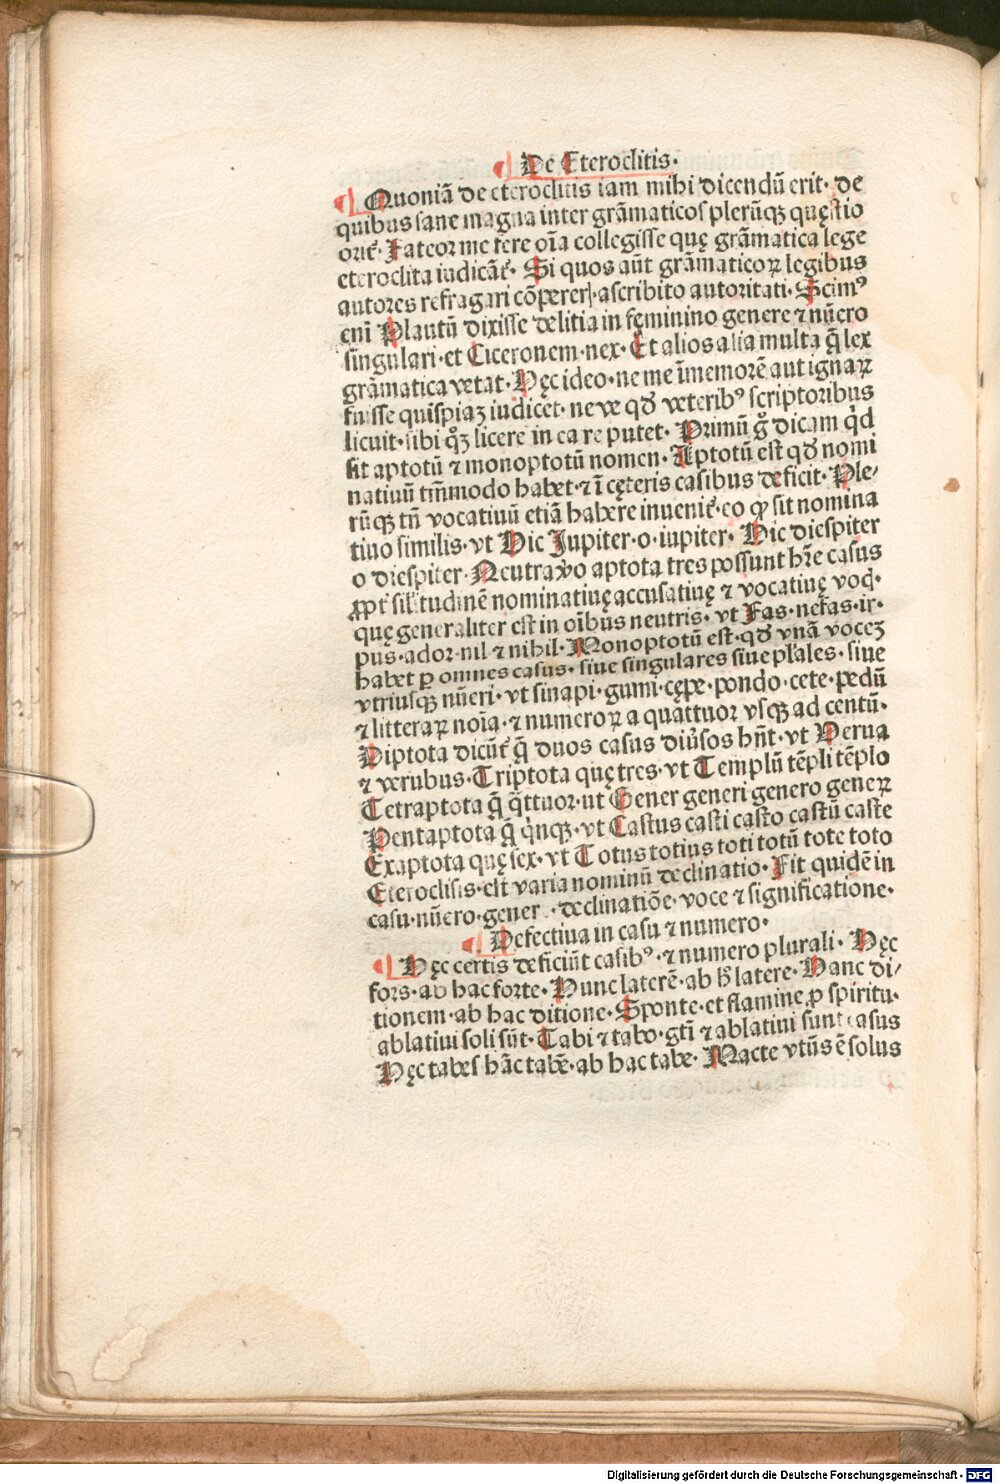 De Eteroclitis.
Quoniã de eteroclitis iam mihi dicendũ erit. de
quibus sane magna inter grãmaticos plerũqꝫ quęstio
orit᷑. Fateor me fere oĩa collegisse quę grãmatica lege
eteroclita iudicãt᷑. Si quos aũt grãmaticoꝝ legibus
autores refragari cõpererꝭ. ascribito autoritati. Scimꝰ
eni᷑ Plautũ dixisse delitia in feminino genere ⁊ nũero
singulari. et Ciceronem. nex. Et alios alia multa q̃ lex
grãmatica vetat. Hęc ideo. ne me ĩmemorẽ aut ignaꝝ
fuisse quispiaꝫ iudicet. neve qđ veteribꝰ scriptoribus
licuit. sibi qꝫ licere in ea re putet. Primũ g̊ dicam qͥd
sit aptotũ ⁊ monoptotũ nomen. Aptotũ est qđ nomi
natiuũ tm̃modo habet. ⁊ ĩ cęteris casibus deficit. Ple⸗
rũqꝫ tñ vocatiuũ etiã habere inuenit᷑. eo ꝙ sit nomina
tiuo similis. vt Hic Jupiter. o. iupiter. Hic diespiter
o diespiter. Neutra v̊o aptota tres possunt hr̃e casus
ꝓpt᷑ silĩtudinẽ nominatiuę accusatiuę ⁊ vocatiuę vocꝭ.
quę generaliter est in oĩbus neutris. vt Fas. nefas. ir⸗
pus. ador. nil ⁊ nihil. Monoptotũ est. qđ vnã voceꝫ
habet ꝑ omnes casus. siue singulares siue pl᷑ales. siue
vtriusqꝫ nũeri. vt sinapi. gumi. cępe. pondo. cete. pedũ
⁊ litteraꝝ noĩa. ⁊ numeroꝝ a quattuor vsqꝫ ad centũ.
Diptota dicũt᷑ q̃ duos casus diũsos hñt. vt Verua
⁊ verubus. Triptota quę tres. vt Templũ tẽpli tẽplo
Tetraptota q̃ q̃ttuor. ut Gener generi genero geneꝝ
Pentaptota q̃ qͥnqꝫ. vt Castus casti casto castũ caste
Exaptota quę sex. vt Totus totius toti totũ tote toto
Eteroclisis. est varia nominũ declinatio. Fit quidẽ in
casu. nũero. gener. . declinatiõe. voce ⁊ significatione.
Defectiua in casu ⁊ numero.
Hęc certis deficiũt casibꝰ. ⁊ numero plurali. Hęc
fors. ab hac forte. Hunc laterẽ. ab h̊ latere. Hanc di⸗
tionem. ab hac ditione. Sponte. et flamine ꝓ spiritu.
ablatiui soli sũt. Tabi ⁊ tabo. gtĩ ⁊ ablatiui sunt casus
Hęc tabes hãc tabẽ. ab hac tabe. Macte vtũs ẽ solus
Digitalisierung gefördert durch die Deutsche Forschungsgemeinschaft - DFG